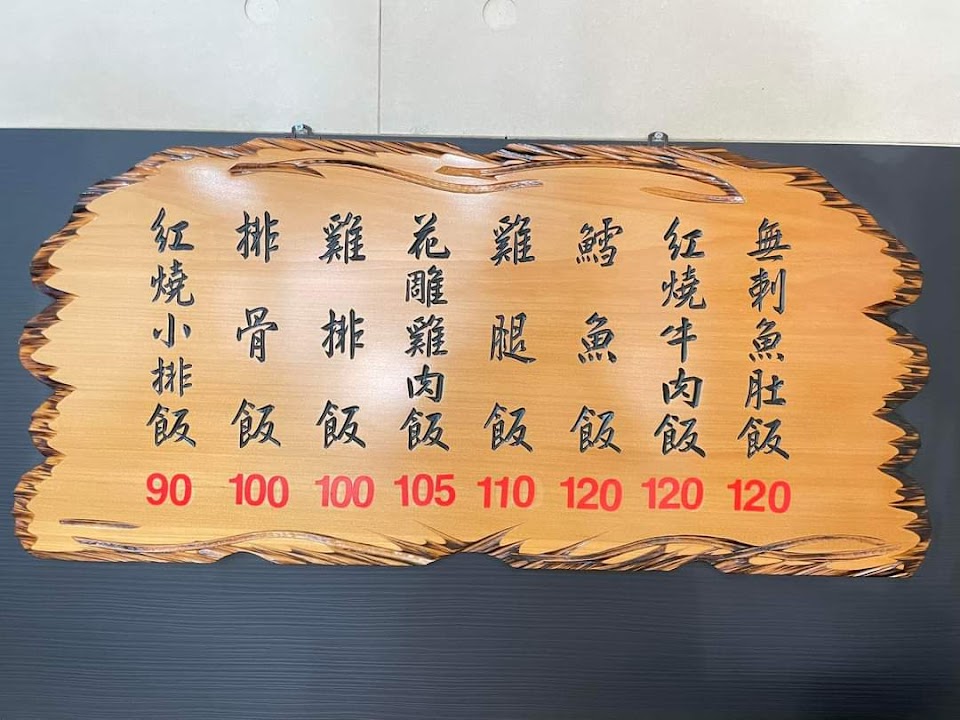 紅燒小排飯 90
排骨飯 100
雞排飯 100
花雕雞肉飯 105
雞腿飯 110
鱈魚飯 120
紅燒牛肉飯 120
無刺魚肚飯 120